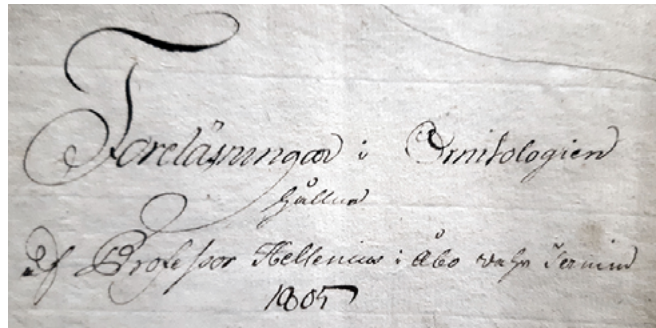 Foreläsningar i Ornitologien
hållna
af Professor Hellenius i Åbo
1805